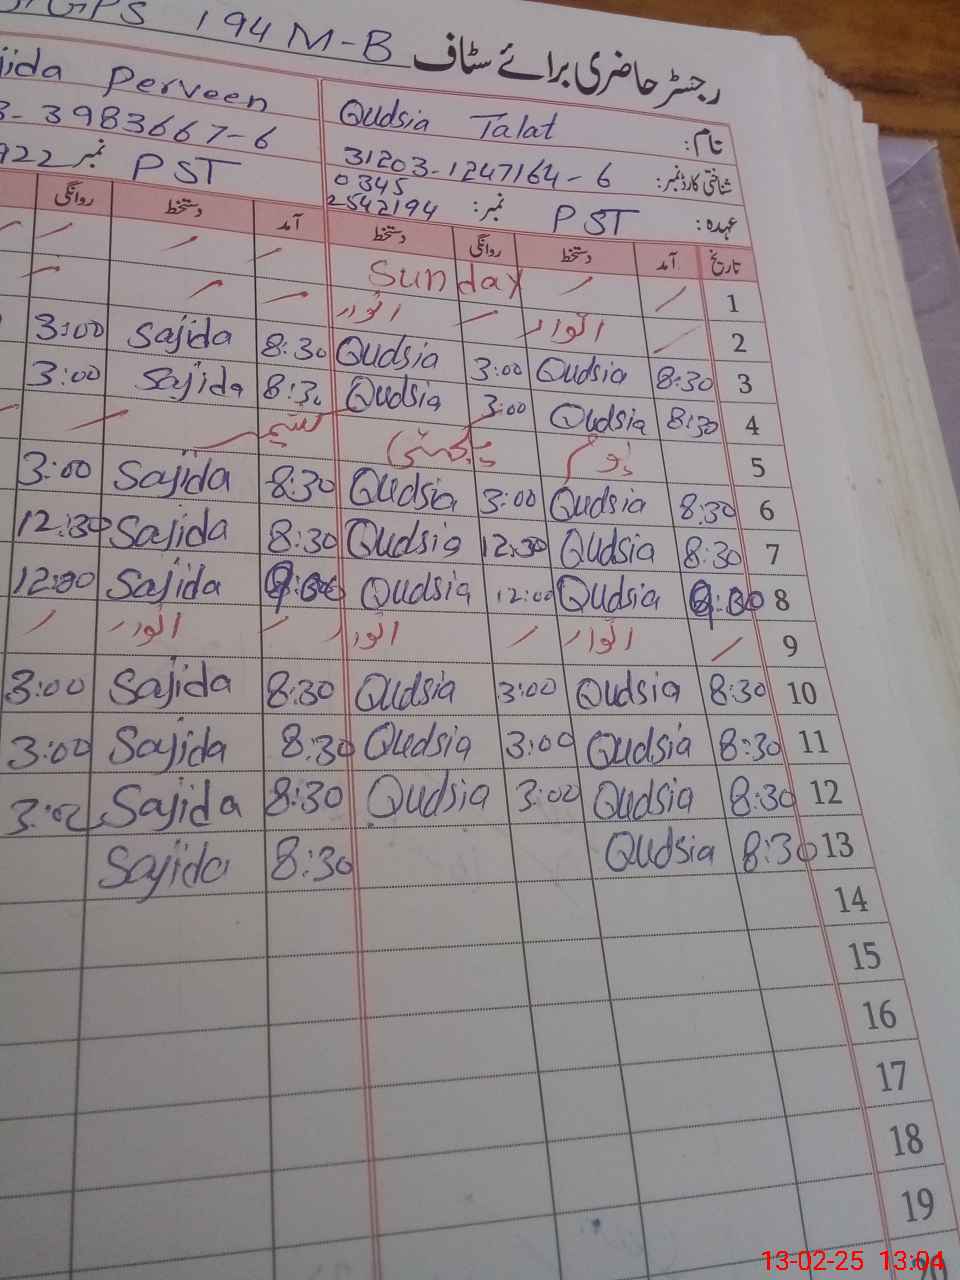 GPS 194 M-B رجسٹر حاضری برائے سٹاف
نام: Qudsia Talat Perveen
شناختی کارڈ نمبر: 31203-1247164-6 3983667-6
عہدہ: PST نمبر: 0345 2542194 PST نمبر 922
تاریخ آمد دستخط روانگی دستخط آمد دستخط روانگی
1 Sunday
2 اتوار اتوار
3 8:30 Qudsia 3:00 Qudsia 8:30 Sajida 3:00
4 8:30 Qudsia 3:00 Qudsia 8:30 Sajida 3:00
5 یوم یکجہتی کشمیر
6 8:30 Qudsia 3:00 Qudsia 8:30 Sajida 3:00
7 8:30 Qudsia 12:30 Qudsia 8:30 Sajida 12:30
8 Qudsia 12:00 Qudsia Sajida 12:00
9 اتوار اتوار اتوار
10 8:30 Qudsia 3:00 Qudsia 8:30 Sajida 3:00
11 8:30 Qudsia 3:00 Qudsia 8:30 Sajida 3:00
12 8:30 Qudsia 3:00 Qudsia 8:30 Sajida
13 8:30 Qudsia 8:30 Sajida
14
15
16
17
18
19
13-02-25 13:04